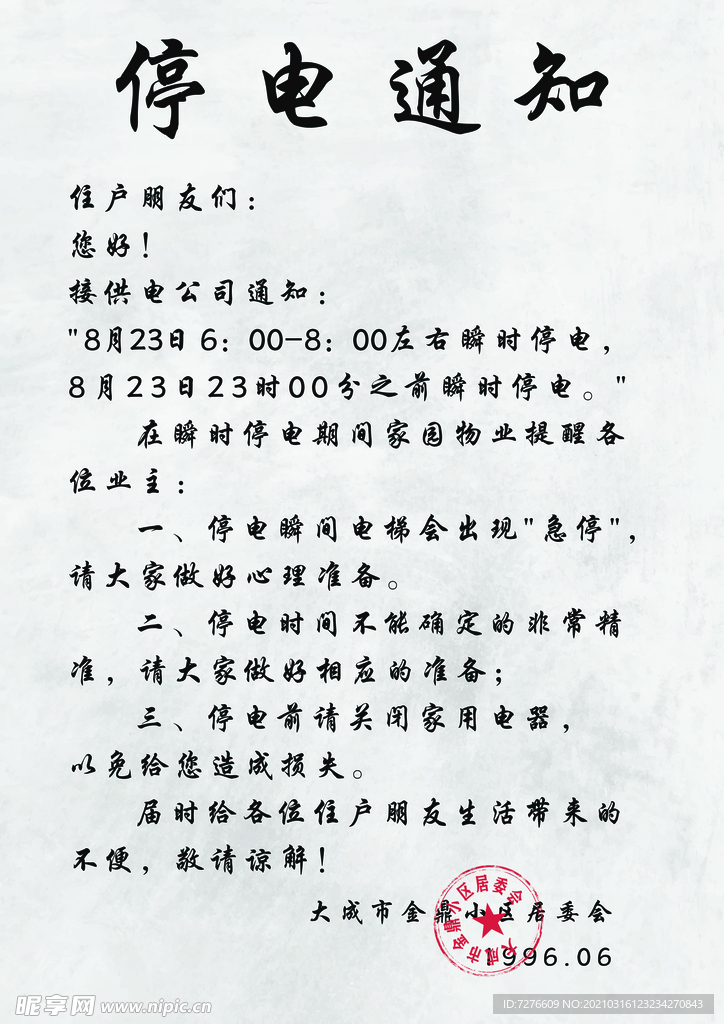 停电通知
住户朋友们：
您好！
接供电公司通知：
"8月23日 6：00-8：00左右瞬时停电，
8月23日23时00分之前瞬时停电。"
在瞬时停电期间家园物业提醒各
位业主：
一、停电瞬间电梯会出现"急停"，
请大家做好心理准备。
二、停电时间不能确定的非常精
准，请大家做好相应的准备；
三、停电前请关闭家用电器，
以免给您造成损失。
届时给各位住户朋友生活带来的
不便，敬请谅解！
大成市金鼎小区居委会
大成市金鼎小区居委会
1996.06
昵享网 www.nipic.cn
ID:7276609 NO:20210316123234270843